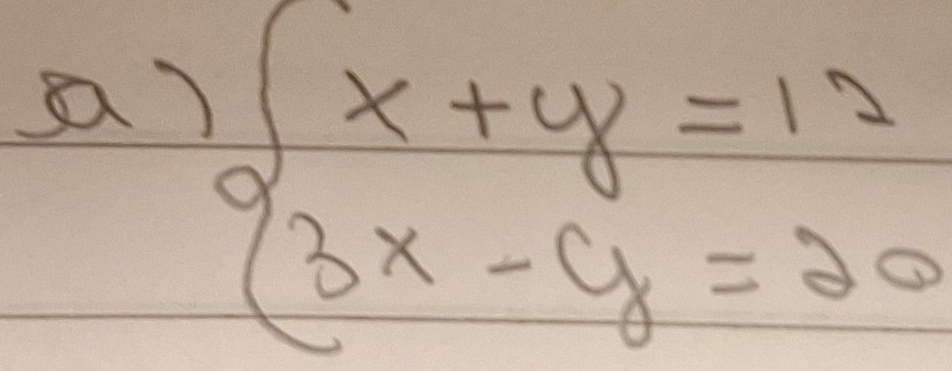 a) { x + y = 12
3x - y = 20